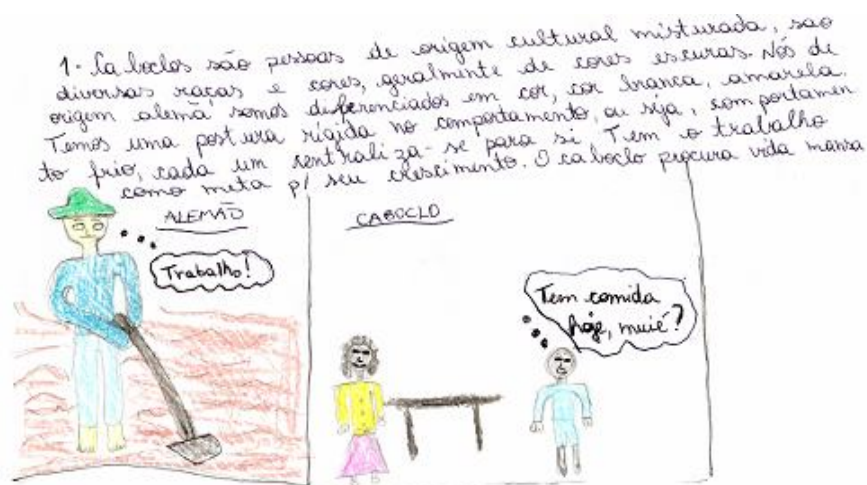 1- Caboclos são pessoas de origem cultural misturada, são
diversas raças e cores, geralmente de cores escuras. Nós de
origem alemã somos diferenciados em cor, cor branca, amarela.
Temos uma postura rígida no comportamento, ou seja, comportamen
to frio, cada um sentraliza-se para si. Tem o trabalho
como meta p/ seu crescimento. O caboclo procura vida mansa
ALEMÃO
Trabalho!
CABOCLO
Tem comida
hoje, muié?